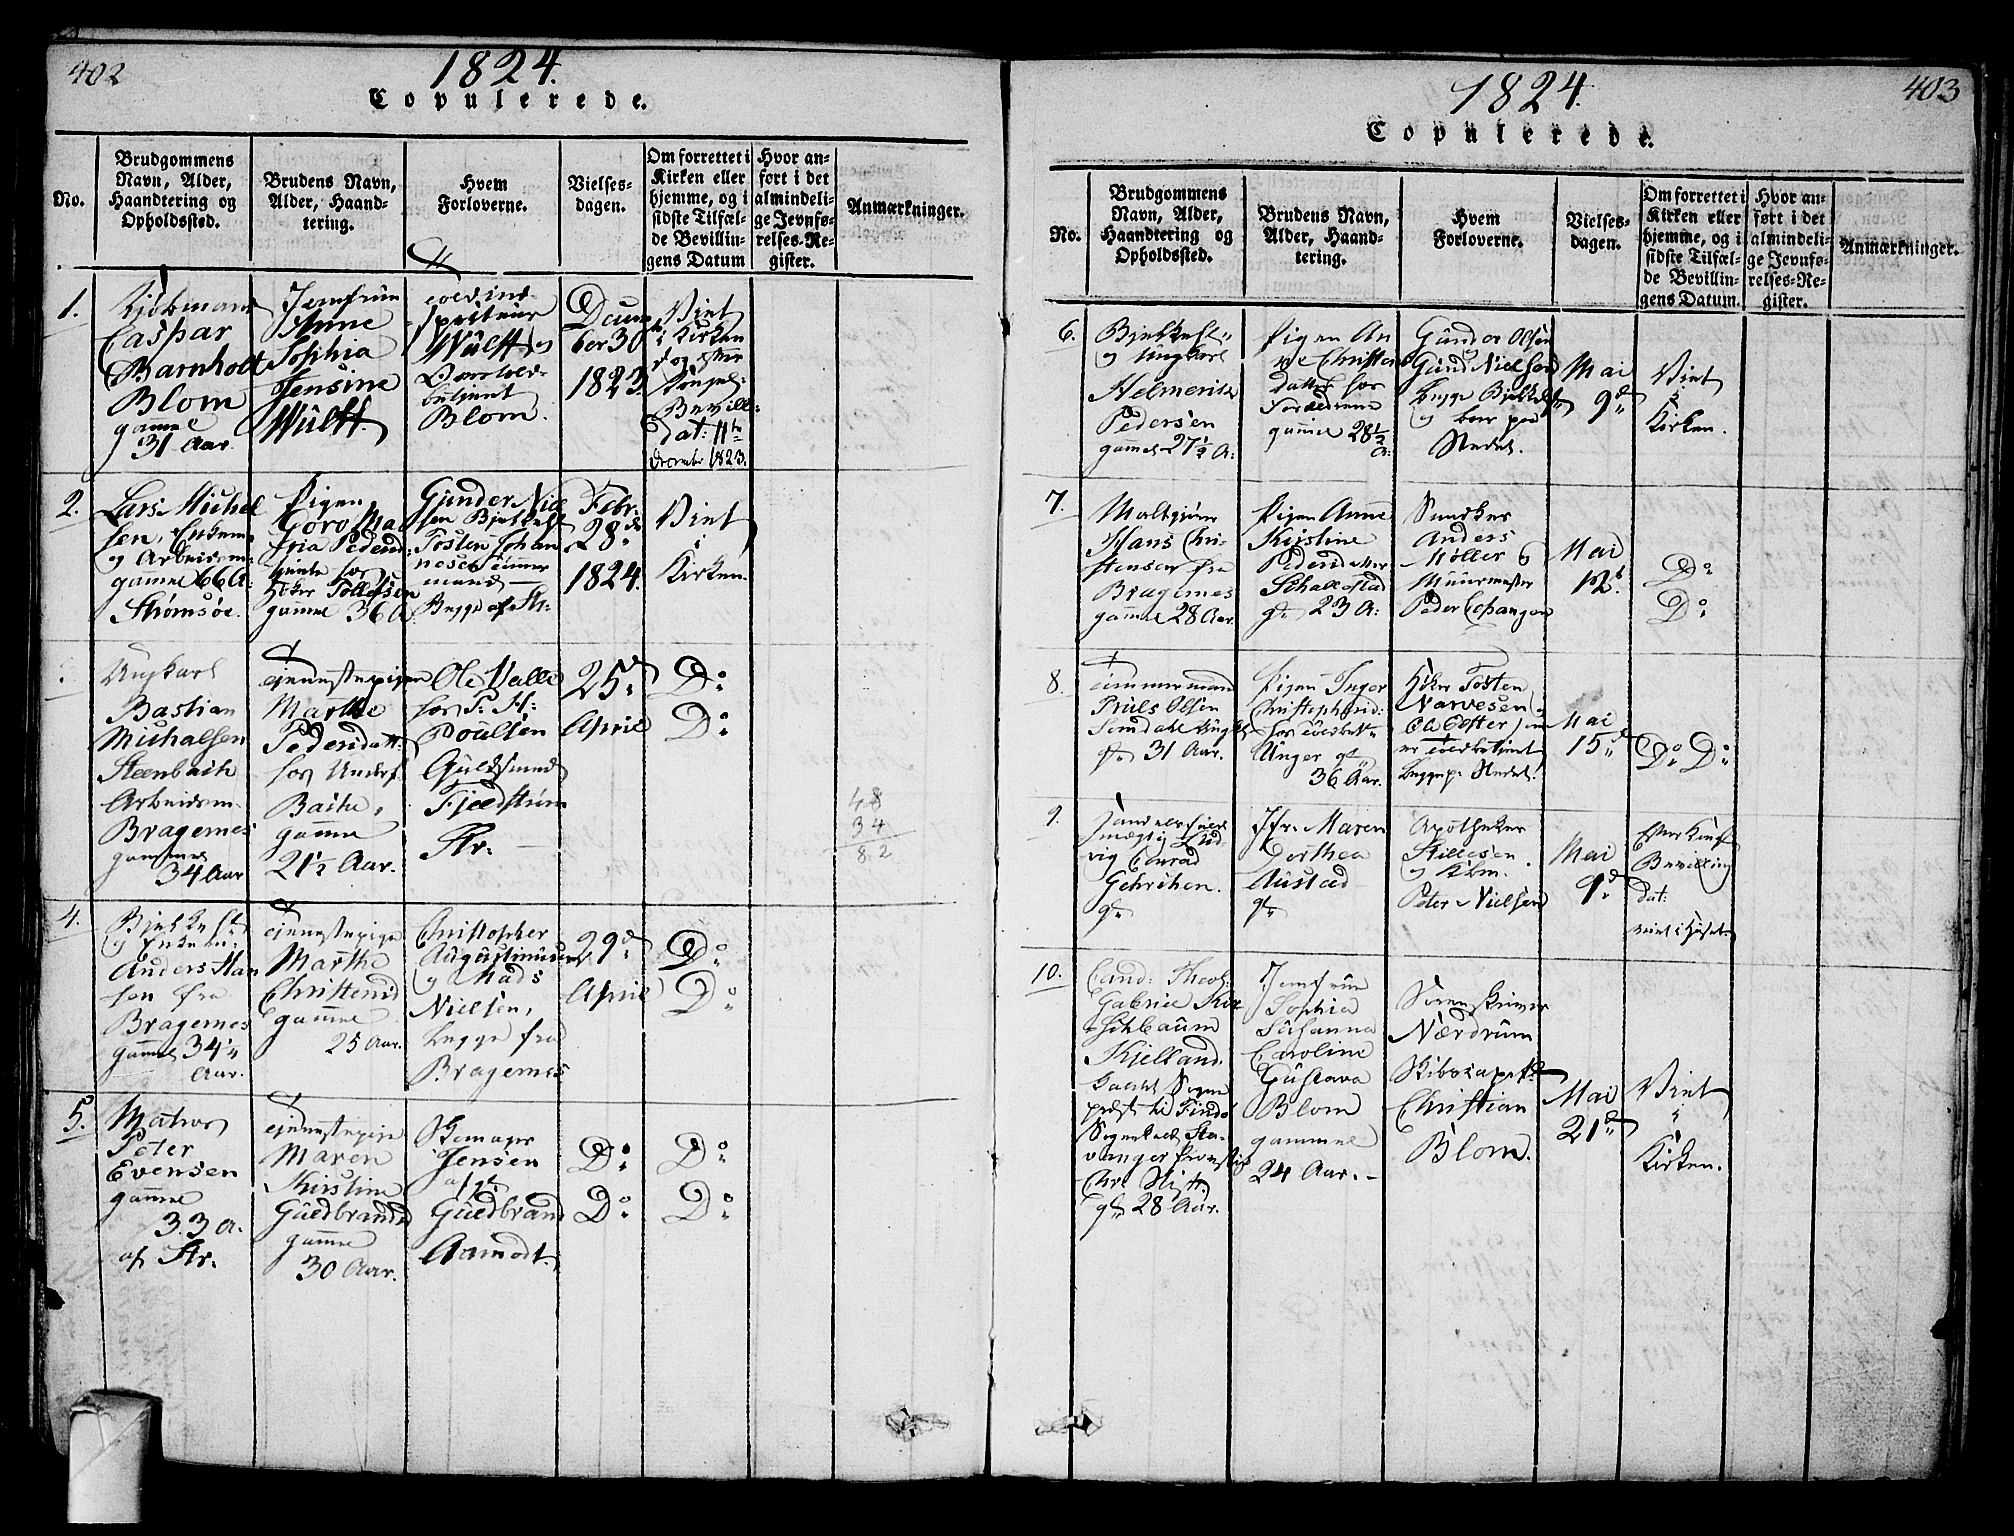 402
1824.
Copulerede.
No.
Brudgommens
Navn, Alder,
Haandtering og
Opholdssted.
Brudens Navn,
Alder, Haand-
tering.
Hvem
Forloverne.
Vielses-
dagen.
Om forrettet i
Kirken eller
hjemme, og i
sidste Tilfæl-
de Bevillin-
gens Datum
Hvor an-
ført i det
almindeli-
ge Jevnfø-
relses-Re-
gister.
Anmærkninger.
1.
Kjøbmand
Caspar
Barnholdt
Blom
gamml
31 Aar.
Jomfrue
Anne
Sophia
Jensine
Wülff
Wülff og
Blom.
Decem
ber 30
1823.
Viet
i Kirken
Bevill:
dat: 11te
December 1823.
2.
Lars Michel
sen, Enkem.
og Arbeidsm.
gamml 66 A:
Strømsøe.
Pigen
Goro Ma
ria Pedersd:
tjente hos
Høker Tollefsen
gamml 36 A.
Gunder Niel
sen
Tosten Johan
nesen Timmer
mand —
Begge af St:
Febr.
28de
1824.
Viet
i
Kirken.
Ungkarl
Bastian
Michalsen
Steenbach
Arbeidsm.
Bragernes
gammel
34 Aar
Tjenestepigen
Marthe
Pedersdatt:
hos
Bache,
gamml
21½ Aar.
Ole Valle
hos P. H:
Poulsen
Guldsmed
Fjeldstrüm
Str. —
25de
April
Do
Do
48
34
82
4.
og Enkem:
Anders Han
sen fra
Bragernes
gamml 34½
Aar.
Tjenestepige
Marthe
Christensd
gamml
25 Aar.
Christopher
Augustinusen
og Mads
Nielsen,
begge fra
Bragernes
29de
April
Do
Do
5.
Matros
Peter
Evensen
gamml
33 A.
af Str.
Tjenestepige
Maren
Kirstine
Guldbrandsd
gamml
30 Aar.
Skomager
Jensen
Guldbrand
Aamodt.
Do
Do
Do
Do
403
1824.
Copulerede.
No.
Brudgommens
Navn, Alder,
Haandtering og
Opholdssted.
Brudens Navn,
Alder, Haand-
tering.
Hvem
Forloverne.
Vielses-
dagen.
Om forrettet i
Kirken eller
hjemme, og i
sidste Tilfæl-
de Bevillin-
gens Datum.
Hvor an-
ført i det
almindeli-
ge Jevnfø-
relses-Re-
gister.
Anmærkninger.
6.
og Ungkarl
Helmerich
Pedersen
gamml 27½ A:
Pigen An
ne Christens
datter hos
Forældrene
gamml 28½
A:
Gunder Olsen
Gund Nielsen
begge
og boer paa
Stedet.
Mai
9de
Viet
i
Kirken.
7.
Hans Chri-
stensen fra
Bragernes
gamml 28 Aar.
Pigen Anne
Kirstine
Pedersdatter
23 A:
Snedker
Anders
Møller og
Muurmester
Peder
Mai
12t
Do
Do
8.
Timmermand
Niels Olsen
31 Aar.
Pigen Inger
Christophersd:
hos
Unger gl
36 Aar.
Høker Tosten
Narvesen og
begge p. Stedet.
Mai
15de
Do Do
9.
vig Conrad
gl.
Jfr. Maren
Dorthea
Austad
gl.
Apotheker
og Kbm.
Peter Nielsen
Mai
9de
Bevilling
dat:
viet i Huset.
10.
Cand: Theol:
Gabriel Kir
schbaum
Kielland.
Chr. Stift.
gl. 28 Aar.
Jomfrue
Sophia
Susanna
Caroline
Gustava
Blom
gammel
24 Aar. -
Sorenskriver
Nærdrum
Skibscapt.
Christian
Blom.
Mai
21de
Viet
i
Kirken.